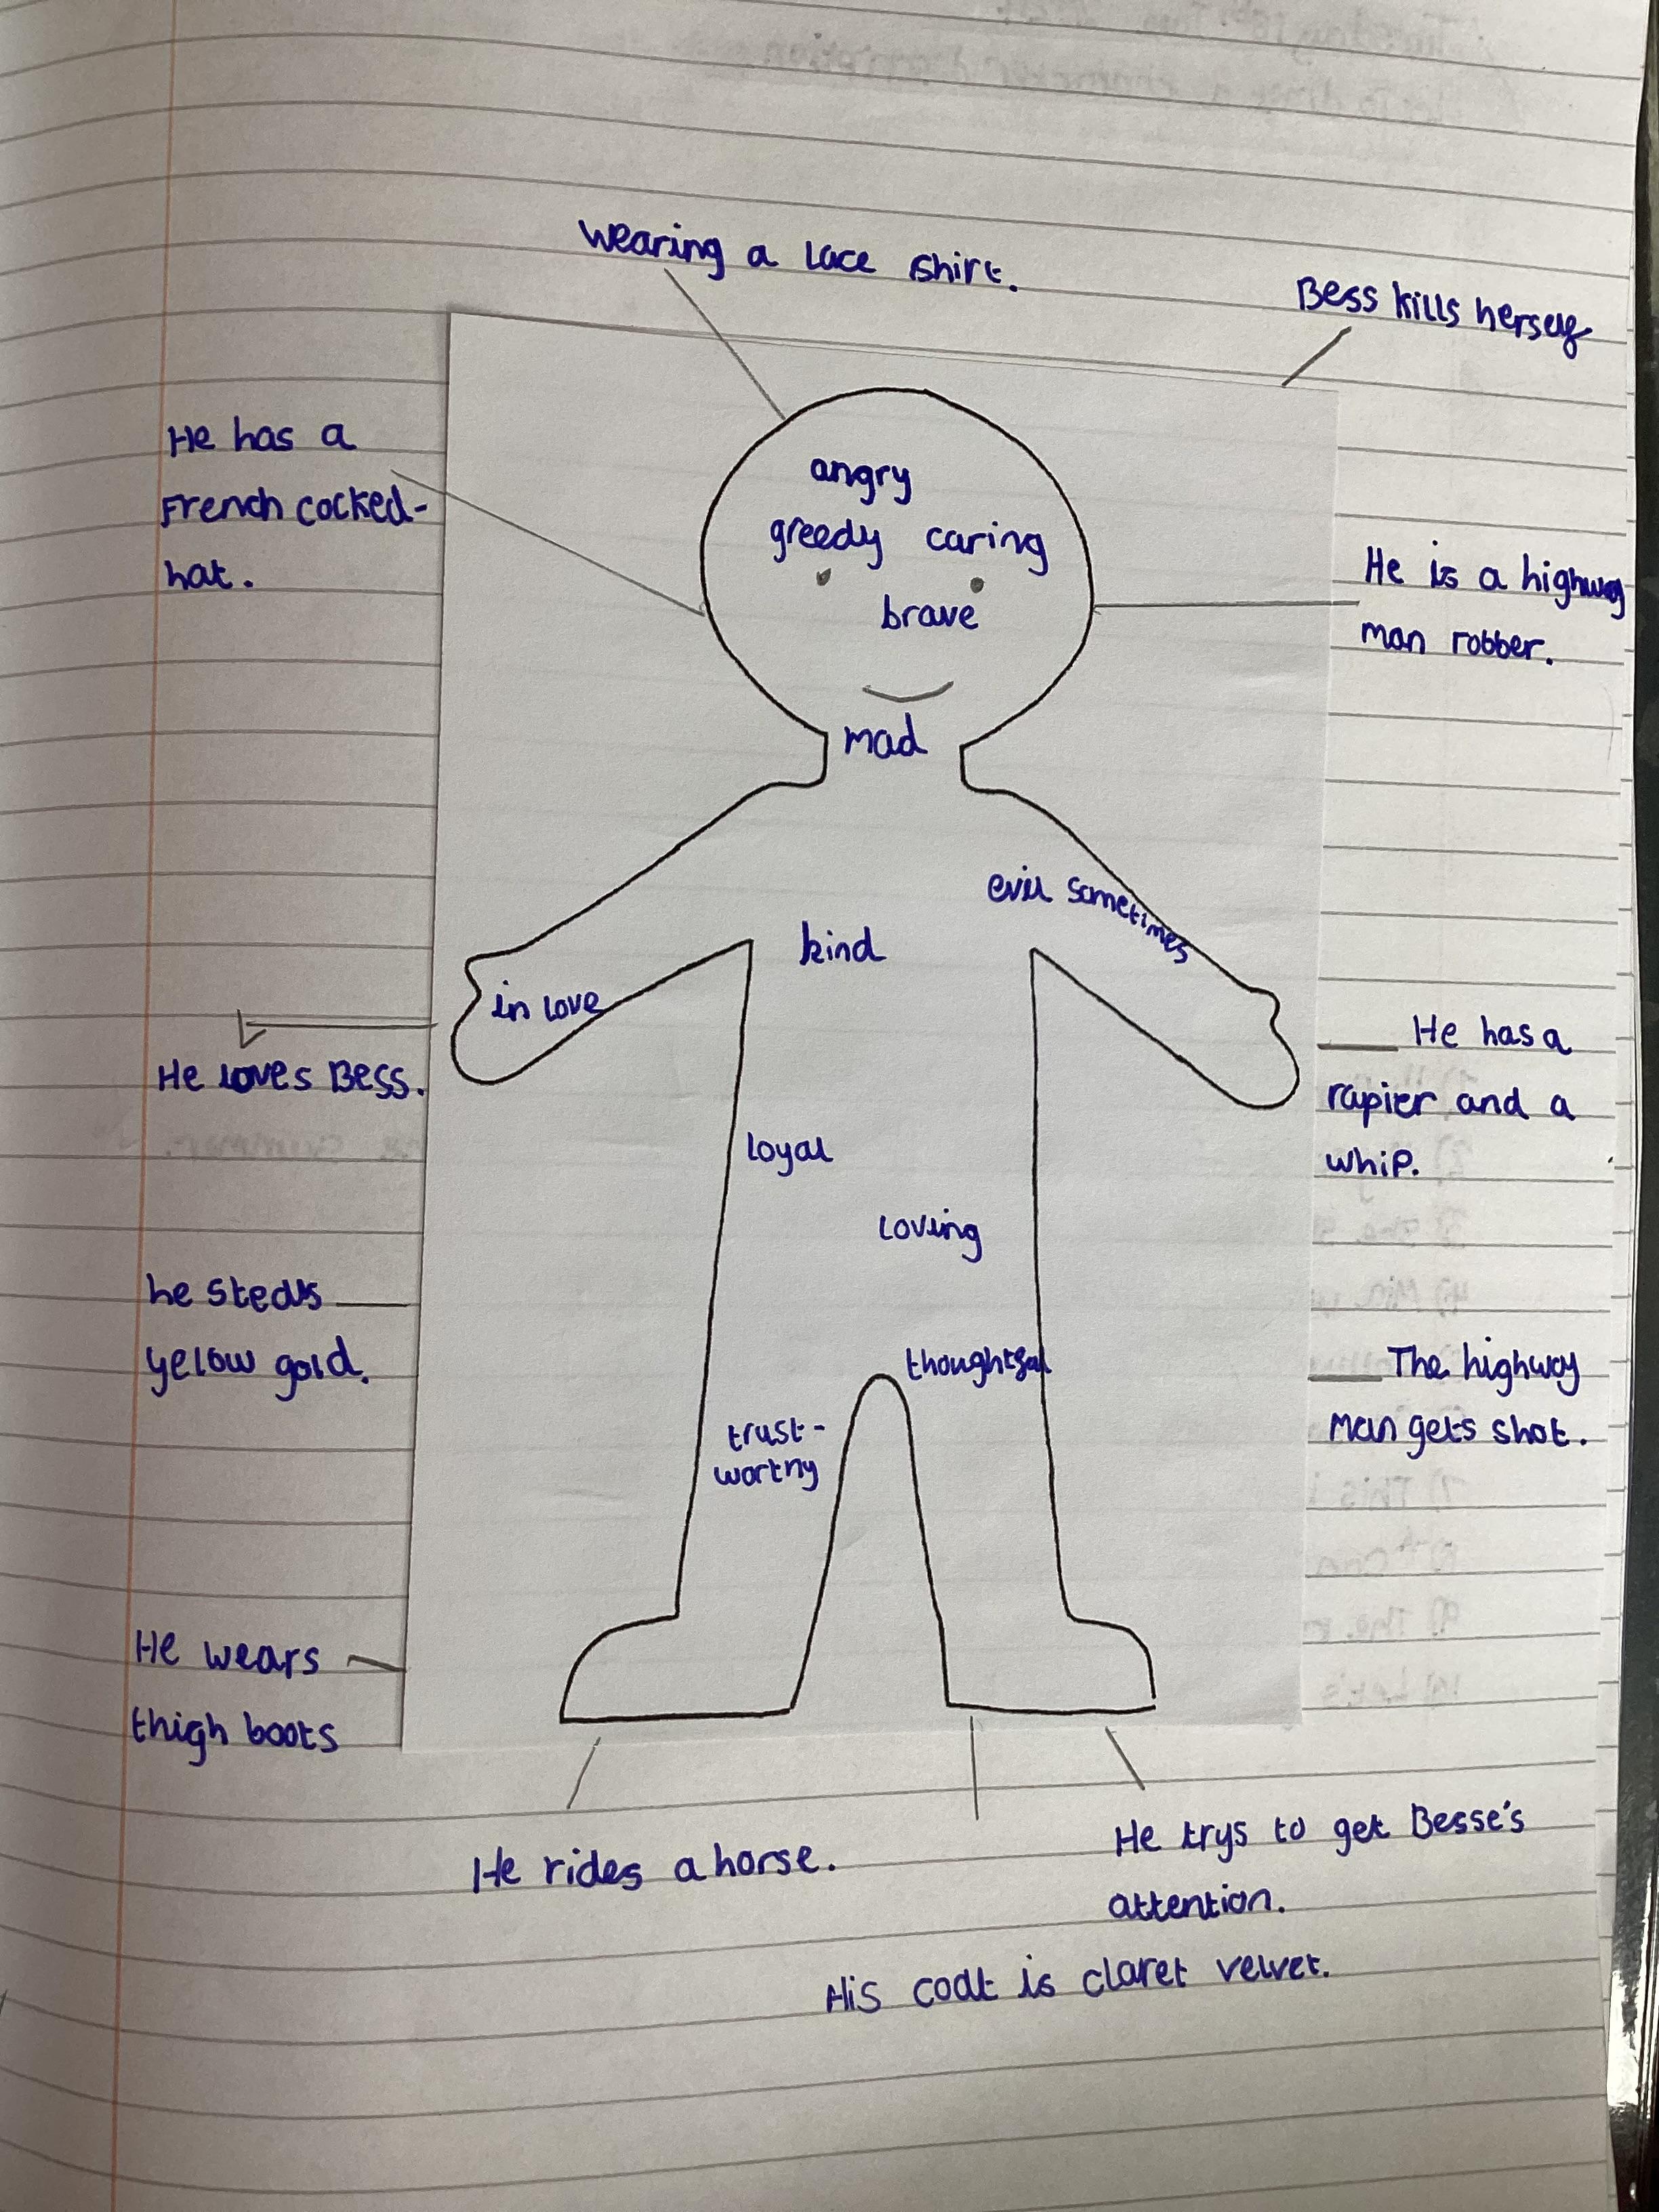 wearing a lace shirt.
Bess kills herself
He has a
French cocked-
hat.
angry
greedy caring
brave
mad
He is a highway
man robber.
evil sometimes
kind
in love
He loves Bess.
He has a
rapier and a
whip.
loyal
loving
he steals
yelow gold.
thoughtful
The highway
man gets shot.
trust-
worthy
He wears
thigh boots
He rides a horse.
He trys to get Besse's
attention.
His coat is claret velvet.